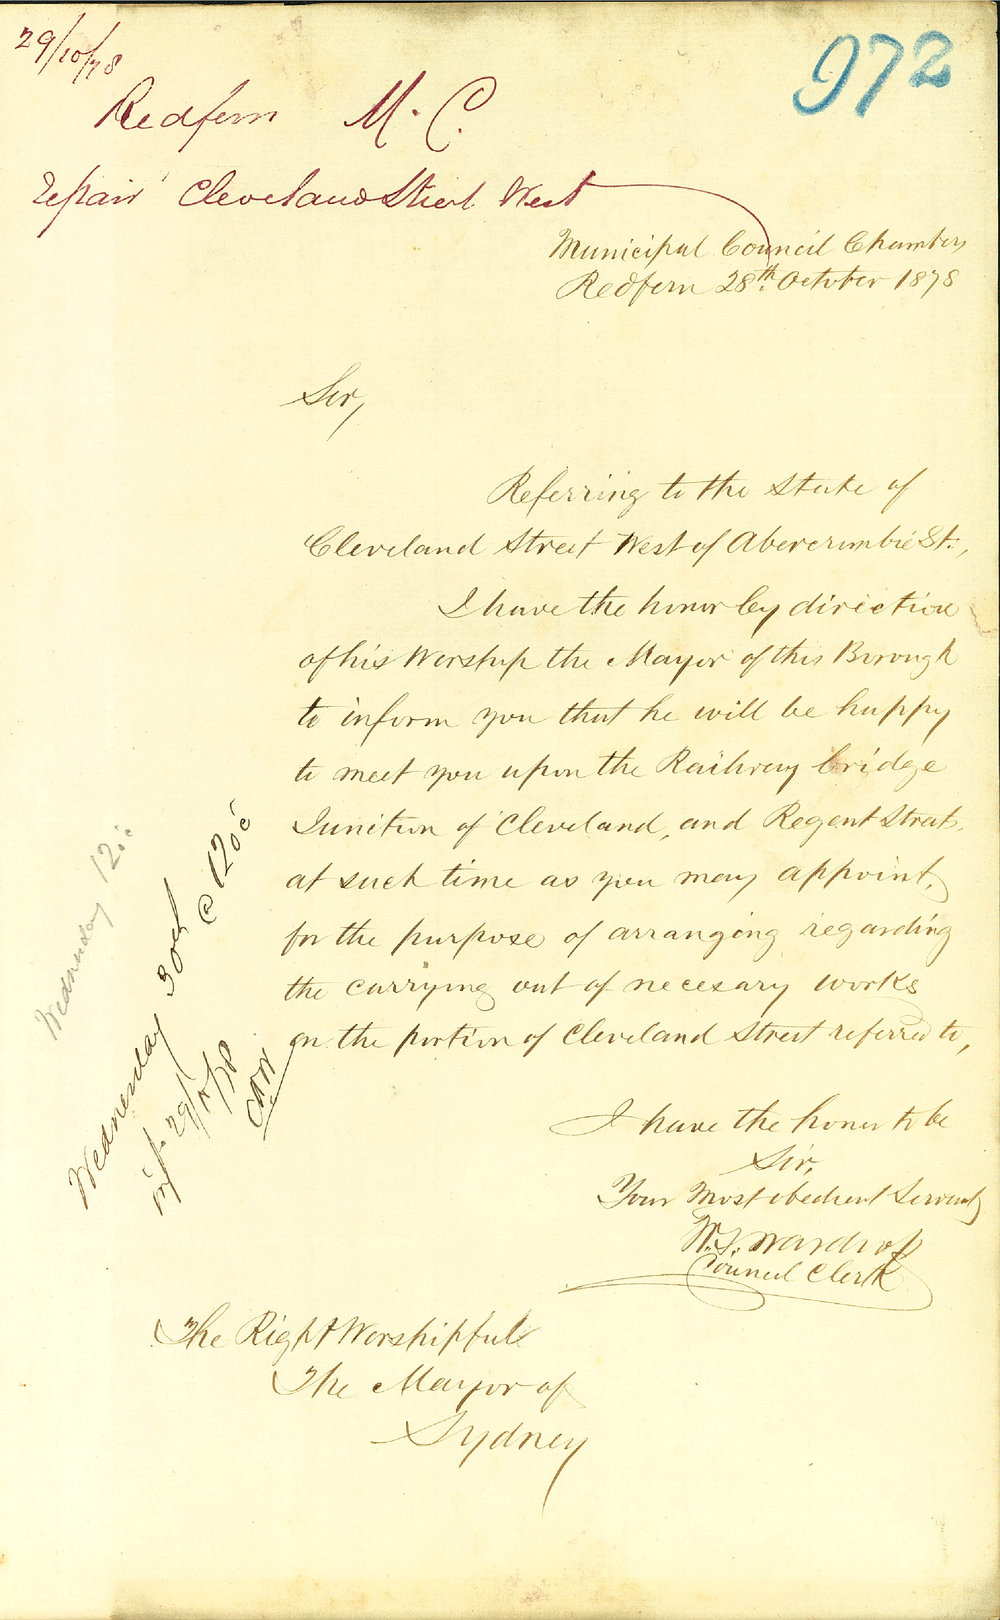 29/10/78
972
Redfern M. C.
repair Cleveland Street West
Municipal Council Chambers
Redfern 28th. October 1878
Sir,
Referring to the state of
Cleveland Street West of Abercrombie St.,
I have the honor by direction
of his Worship the Mayor of this Borough
to inform you that he will be happy
to meet you upon the Railway bridge
Junction of Cleveland, and Regent Street.
at such time as you may appoint,
for the purpose of arranging regarding
the carrying out of necesary works
on the portion of Cleveland Street referred to,
I have the honor to be
Sir,
Your Most obedient Servant
W.S. Wardrop
Council Clerk
The Right Worshipful
The Mayor of
Sydney
Wednesday 12oc
Wednesday 30th @ 12oc
inf. 29/10/78